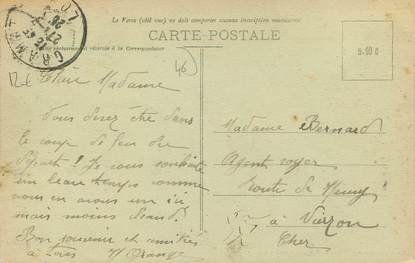 Le Verso (côté vue) ne doit comporter aucune inscription manuscrite
CARTE-POSTALE
exclusivement est réservée à la Correspondance
GRAMAT
LOT
46
12 €
5.10 c
Chère Madame
Vous devez être dans
le coup de feu du
départ ! Je vous souhaite
un beau temps comme
nous en avons un ici
mais moins chaud.
Bon souvenir et amitiés
à tous
Madame Bernard
Agent voyer
route de
à Vierzon
Cher